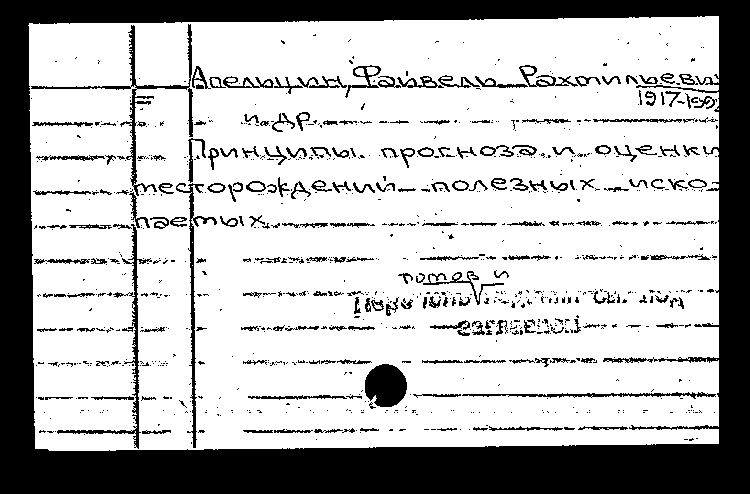 Апельцин, Файвель Рахмильеви
1917-199
и др.
Принципы прогноза и оценки
месторождений полезных иско-
паемых
томов и